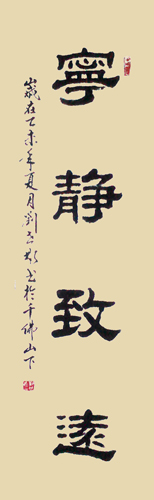 寧静致遠
歲在乙未年夏月劉書於千佛山下